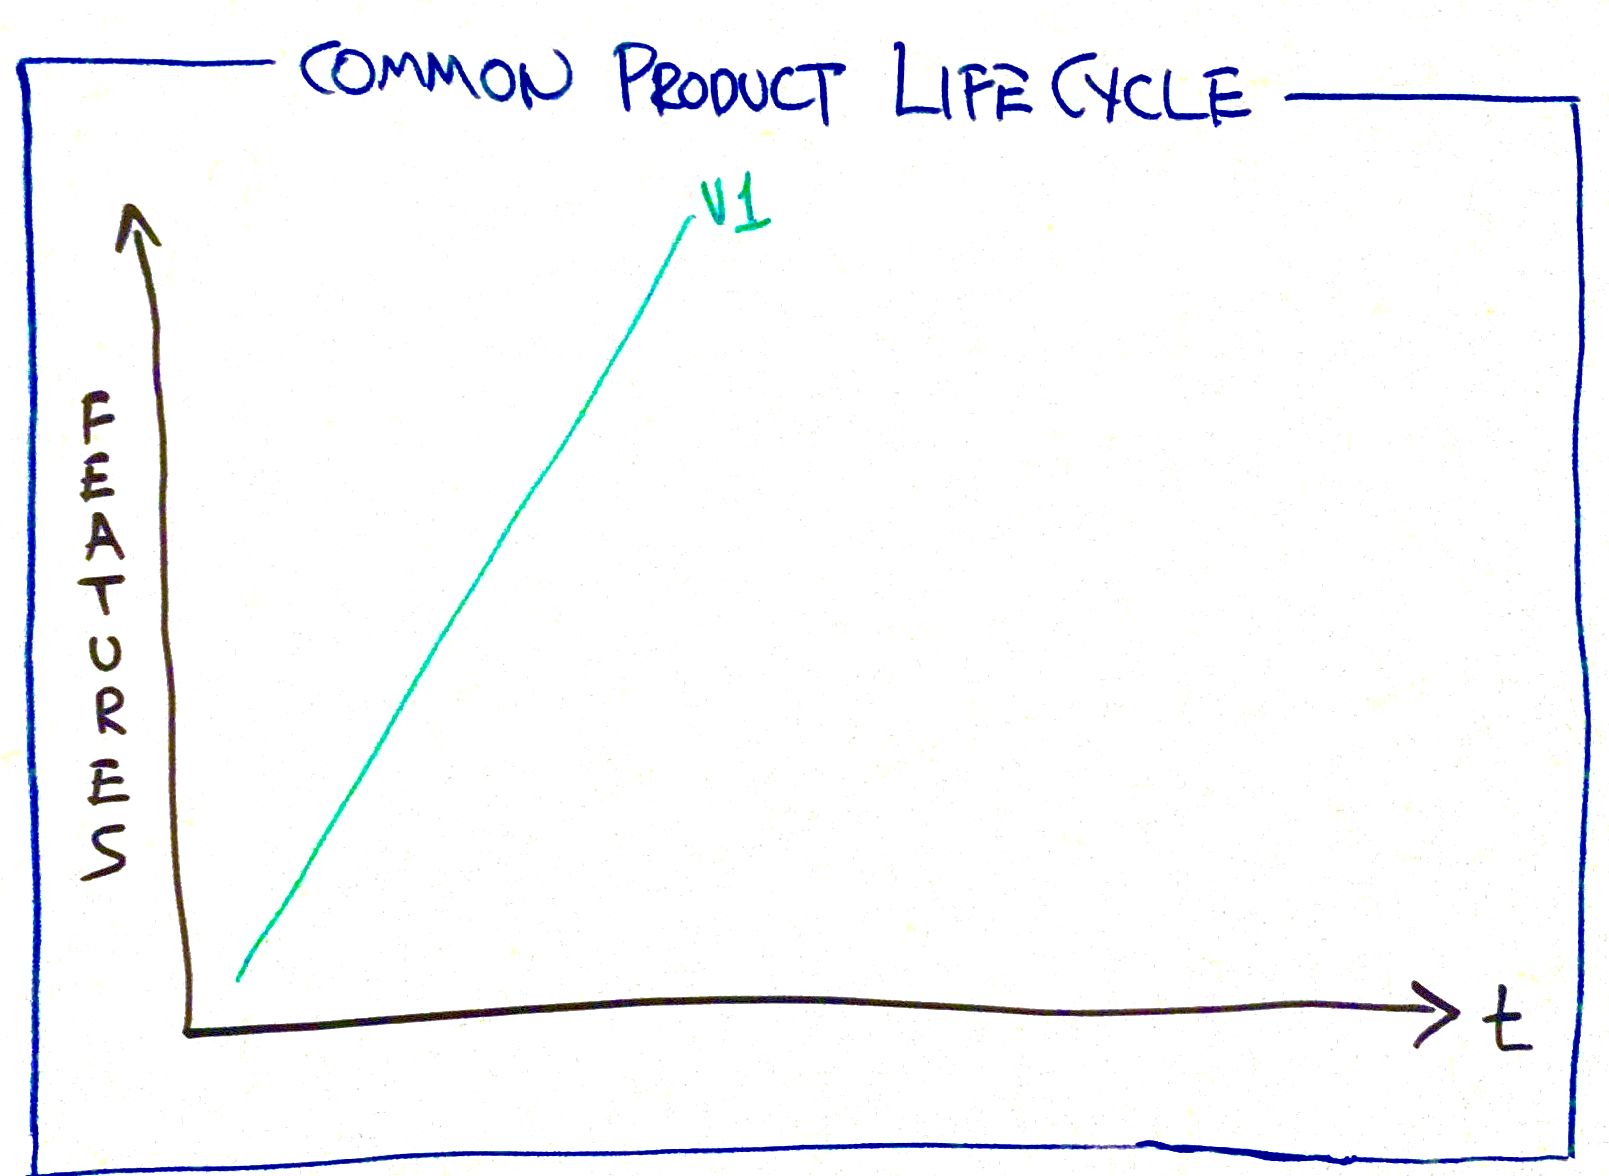 COMMON PRODUCT LIFE CYCLE
V1
FEATURES
t